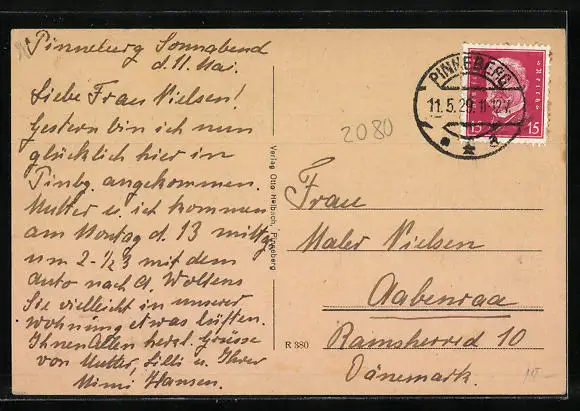 Pinneberg Sonnabend
d. 11. Mai.
Liebe Frau Nielsen!
Gestern bin ich nun
glücklich hier in
Pinbg. angekommen.
Mutter u. ich kommen
am Montag d. 13 mittag
um 2-½3 mit dem
Auto nach A. Wollens
Sie vielleicht in unserer
Wohnung etwas lüften.
Ihnen Allen herzl. Grüsse
von Mutter, Lilli u. Ihrer
Mimi Hansen.
Verlag Otto Heibach, Pinneberg
R 380
2080
PINNEBERG
11.5.29.11-12V.
a
Reich
15 15
Frau
Maler Nielsen
Aabenraa
Ramsherred 10
Dänemark.